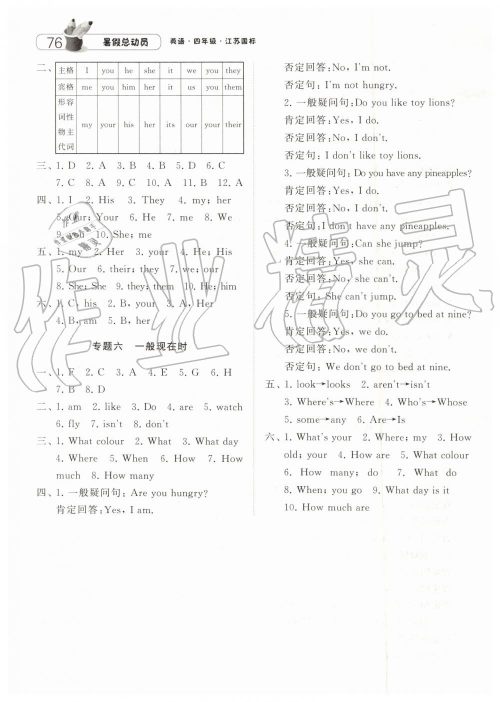 76 暑假总动员 英语·四年级·江苏国标
二、主格 I you he she it we you they
宾格 me you him her it us you them
形容词性物主代词 my your his her its our your their
三、1. D 2. A 3. B 4. B 5. D 6. C
7. C 8. A 9. C 10. A 11. B 12. A
四、1. I 2. His 3. They 4. my; her
5. Our; Your 6. He 7. me 8. We
9. you 10. She; me
五、1. my 2. Her 3. your 4. His; His
5. Our 6. their; they 7. we; our
8. She; She 9. they; them 10. He; him
六、1. C, his 2. B, your 3. A, Her
4. B, am 5. B, her
专题六 一般现在时
一、1. F 2. C 3. A 4. E 5. G 6. H
7. B 8. D
二、1. am 2. like 3. Do 4. are 5. watch
6. fly 7. isn't 8. don't
三、1. What colour 2. What 3. What day
4. Where 5. When 6. How 7. How
much 8. How many
四、1. 一般疑问句: Are you hungry?
肯定回答: Yes, I am.
否定回答: No, I'm not.
否定句: I'm not hungry.
2. 一般疑问句: Do you like toy lions?
肯定回答: Yes, I do.
否定回答: No, I don't.
否定句: I don't like toy lions.
3. 一般疑问句: Do you have any pineapples?
肯定回答: Yes, I do.
否定回答: No, I don't.
否定句: I don't have any pineapples.
4. 一般疑问句: Can she jump?
肯定回答: Yes, she can.
否定回答: No, she can't.
否定句: She can't jump.
5. 一般疑问句: Do you go to bed at nine?
肯定回答: Yes, we do.
否定回答: No, we don't.
否定句: We don't go to bed at nine.
五、1. look→looks 2. aren't→isn't
3. Where's→Where 4. Who's→Whose
5. some→any 6. Are→Is
六、1. What's your 2. Where; my 3. How
old; your 4. How are 5. What colour
6. How many; do 7. What do
8. When; you go 9. What day is it
10. How much are
作业精灵